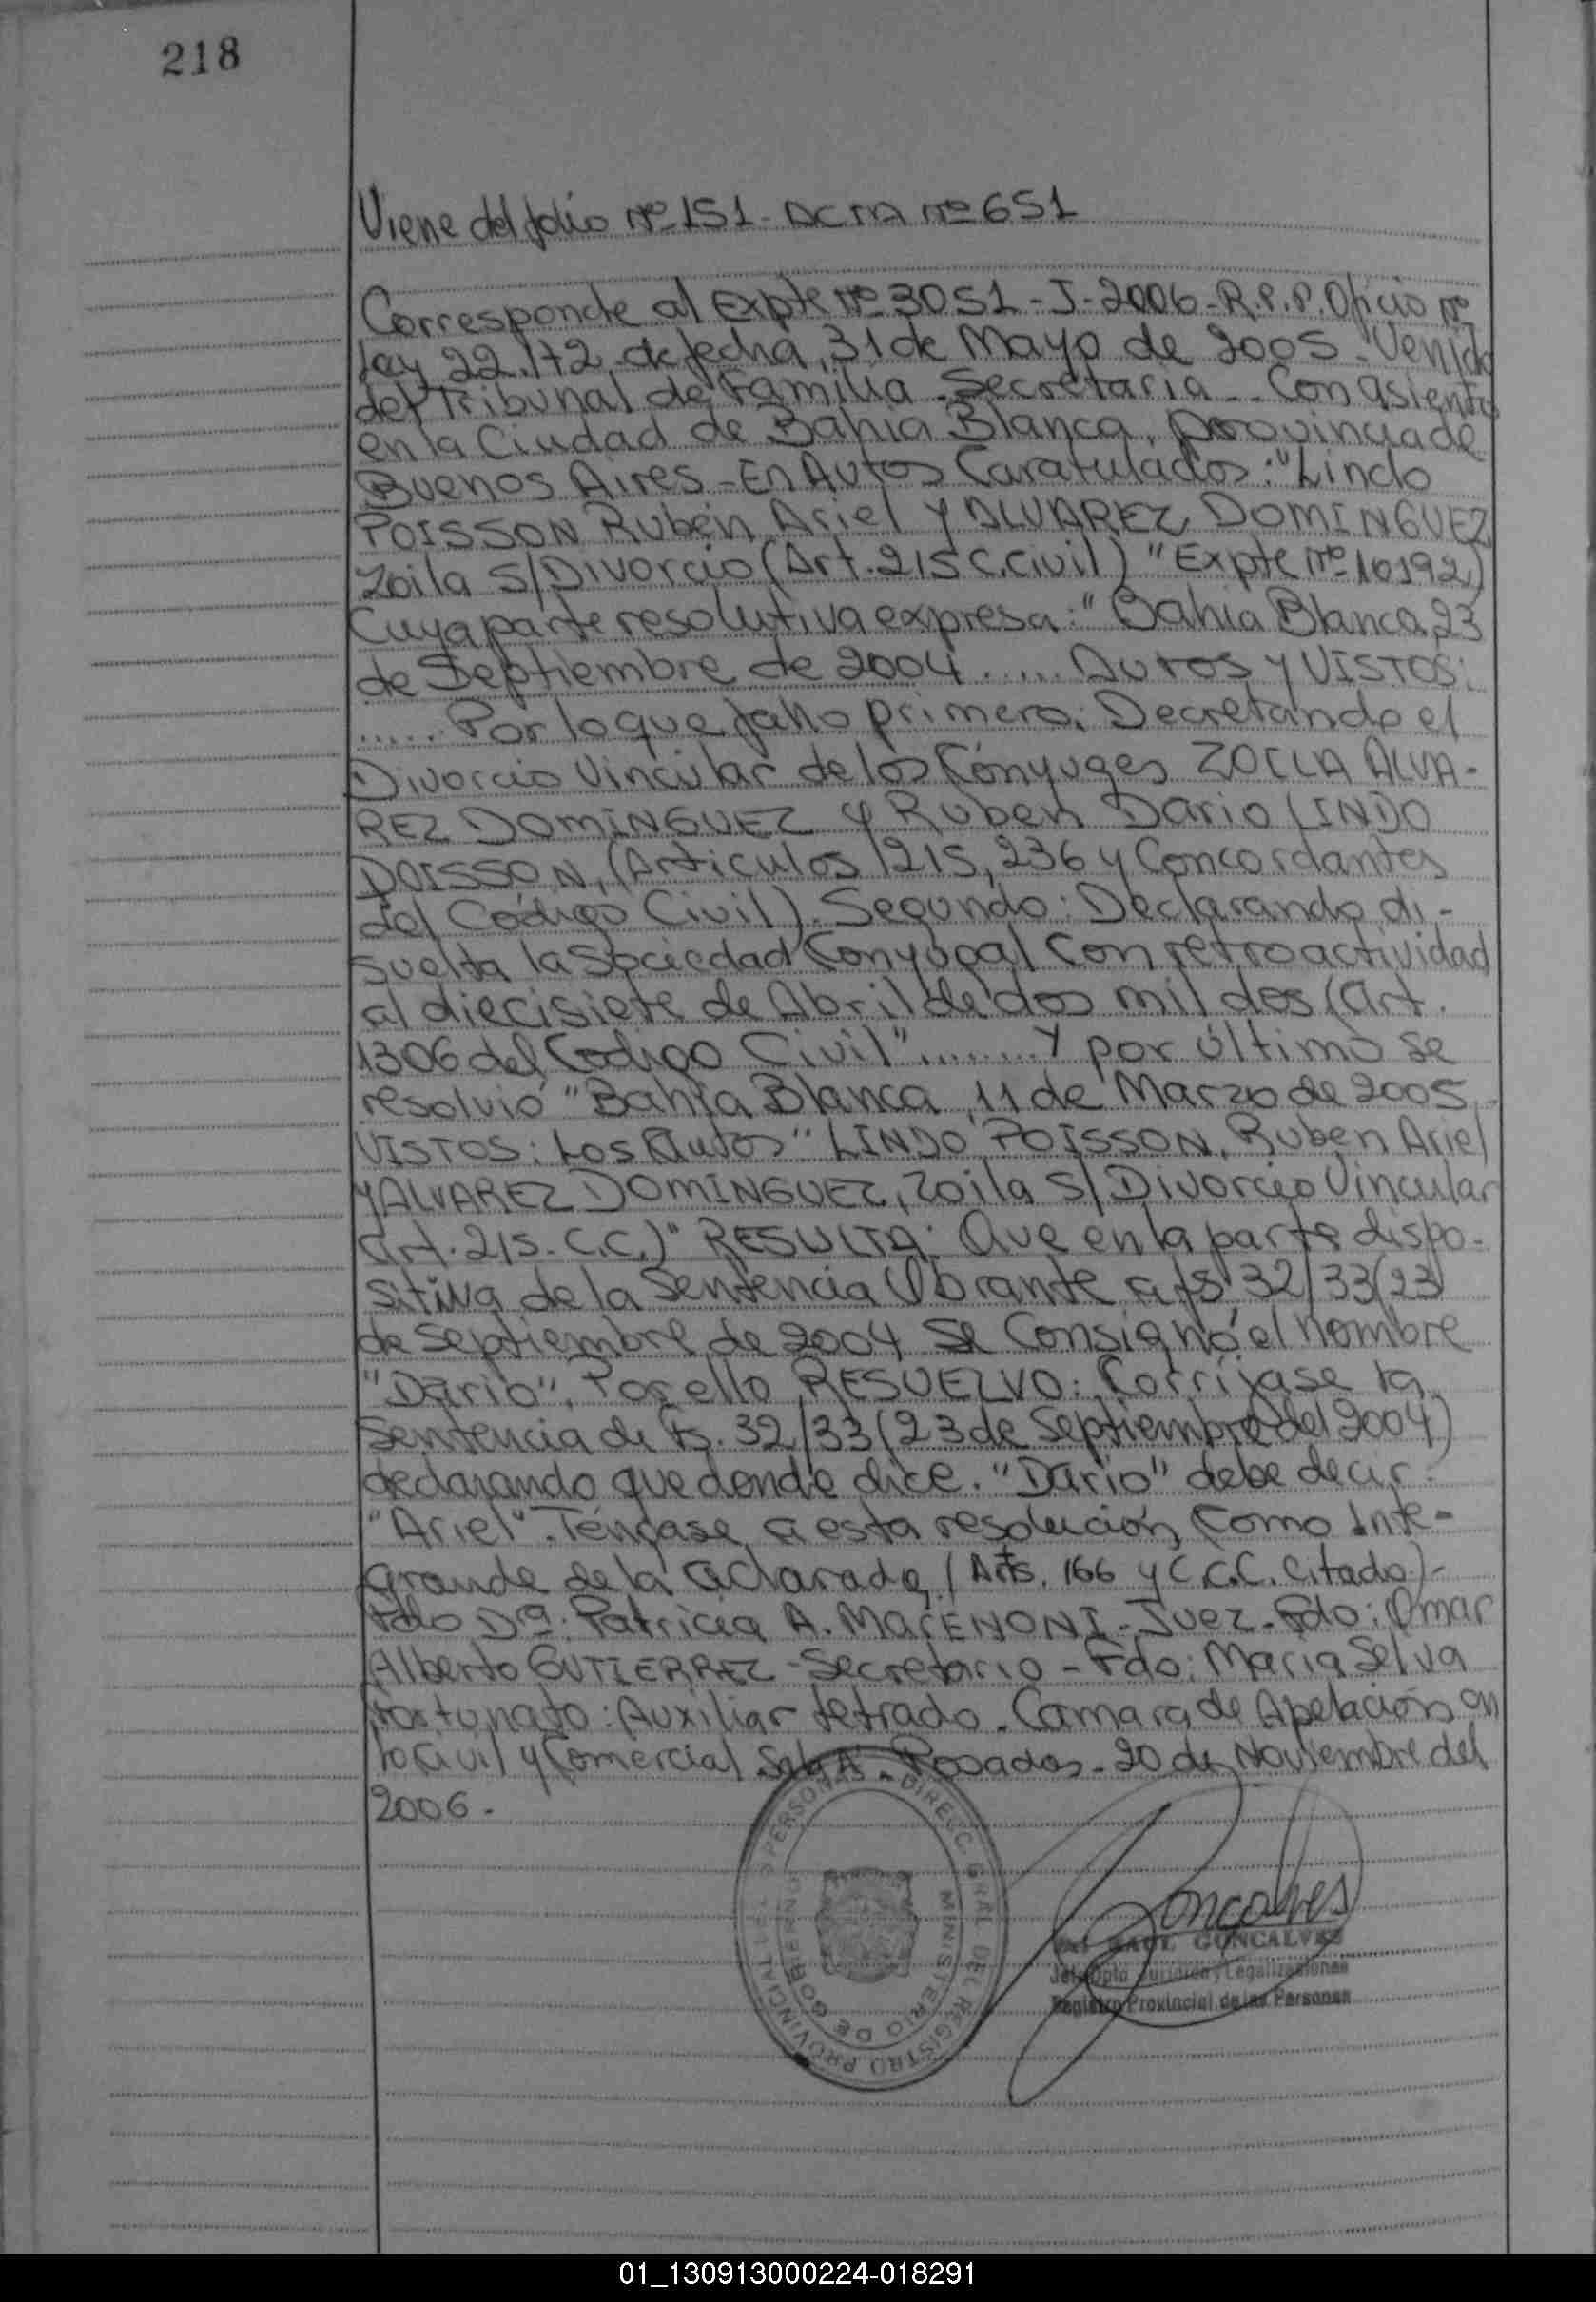 218
Viene del folio Nº 151 - ACTA Nº 651
Corresponde al Expte Nº 3051 - J - 2006 - R.P.P. Oficio Nº
Ley 22.172 de fecha, 31 de Mayo de 2005 - Venido
del Tribunal de Familia - Secretaria - Con asiento
en la Ciudad de Bahia Blanca, provincia de
Buenos Aires - En Autos Caratulados: "Lindo
POISSON Rubén Ariel y ALVAREZ DOMINGUEZ
Zoila S/ Divorcio (Art. 215 C. Civil) " Expte Nº 10192,)
Cuya parte resolutiva expresa: "Bahia Blanca, 23
de Septiembre de 2004 ..... Autos y VISTOS:
...... Por lo que fallo primero: Decretando el
Divorcio Vincular de los Cónyuges ZOILA ALVA-
REZ DOMINGUEZ y Ruben Dario LINDO
POISSON, (Articulos 215, 236 y Concordantes
del Código Civil). Segundo: Declarando di-
suelta la Sociedad Conyugal Con retroactividad
al diecisiete de Abril de dos mil dos (Art.
1306 del Codigo Civil" ......... Y por último se
resolvió "Bahía Blanca, 11 de Marzo de 2005
VISTOS: Los Autos "LINDO POISSON, Ruben Ariel
y ALVAREZ DOMINGUEZ, Zoila S/ Divorcio Vincular
Art. 215. C.C.)" RESULTA: Que en la parte dispo-
sitiva de la Sentencia Obrante a fs 32/33 (23
de Septiembre de 2004 se Consignó el nombre
"Dario", Por ello RESUELVO: Corríjase la
Sentencia de fs. 32/33 (23 de Septiembre del 2004)
declarando que donde dice. "Dario" debe decir:
"Ariel". Téngase a esta resolución, Como Inte-
grande de la aclarada, (Arts. 166 y C.C.C. Citado)-
Fdo Dra: Patricia A. MARENONI - Juez - Fdo: Omar
Alberto GUTIERREZ - Secretario - Fdo: Maria Selva
Fortunato: Auxiliar Letrado - Camara de Apelación en
lo Civil y Comercial Sala A - Posadas - 20 de Noviembre del
2006.-
DIRECC. GRAL. DEL REGISTRO PROVINCIAL DE PERSONAS
MINISTERIO DE GOBIERNO
Goncalves
RAUL GONCALVES
Jefe Dpto. Juridico y Legalizaciones
Registro Provincial de las Personas
01_130913000224-018291